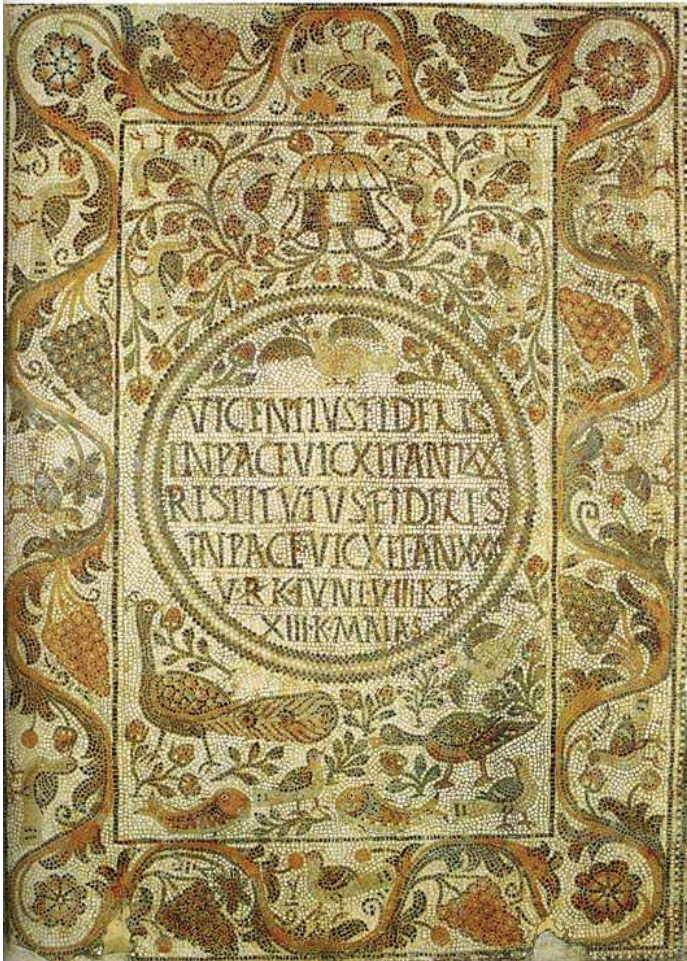 VICENTIVS FIDELIS
IN PACE VICXIT AN XX
RESTITVTVS FIDELES
IN PACE VICXIT AN XXX
XIII·K·MAIAS